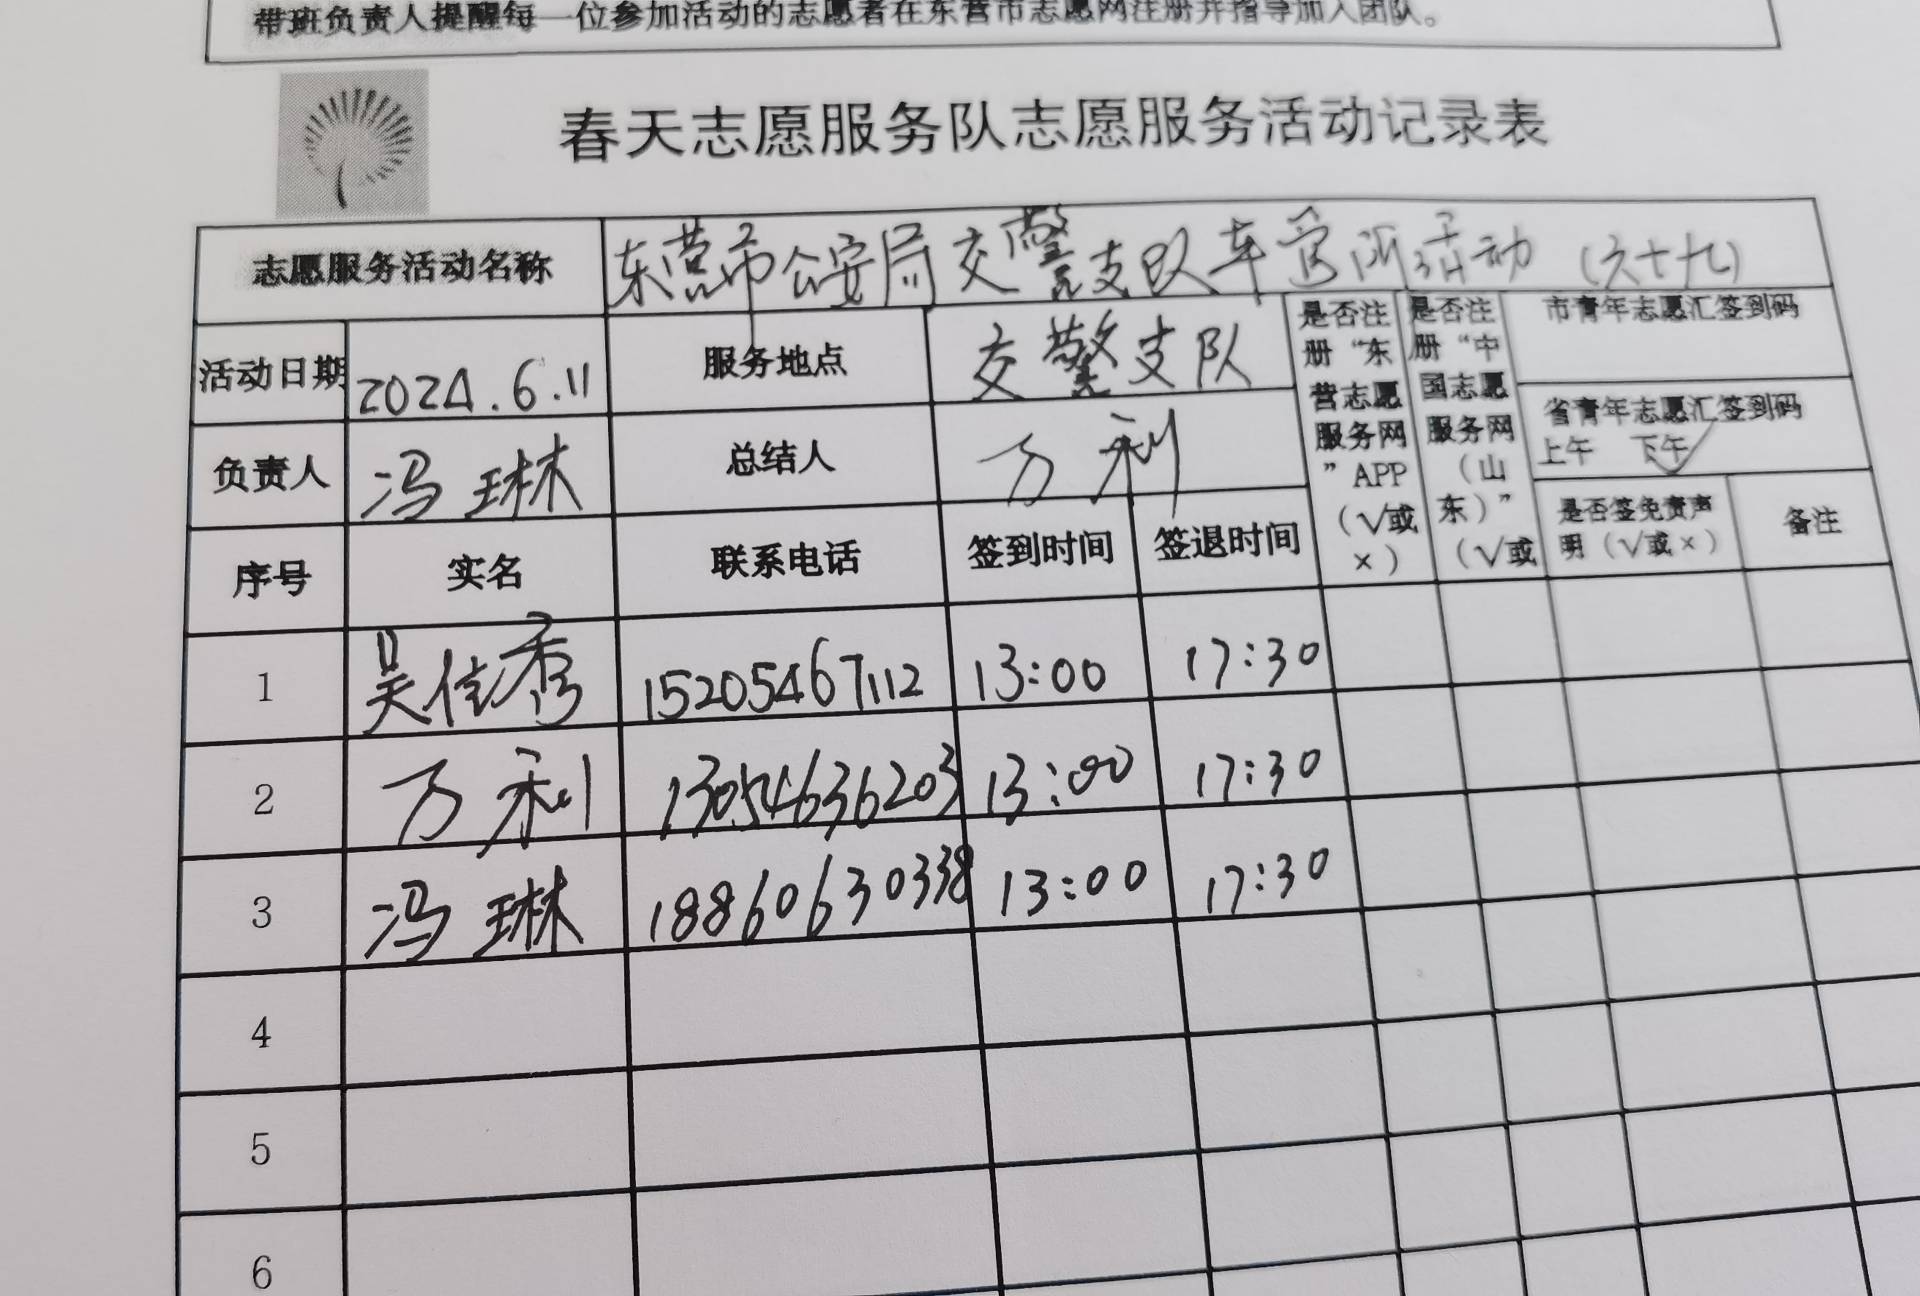 带班负责人提醒每一位参加活动的志愿者在东营市志愿网注册并指导加入团队。
春天志愿服务队志愿服务活动记录表
志愿服务活动名称 东营市公安局交警支队车管所活动（六十九）
活动日期 2024.6.11 服务地点 交警支队
负责人 冯琳 总结人 万利
是否注册“东营志愿服务网”APP（√或×）
是否注册“中国志愿服务网（山东）”（√或
市青年志愿汇签到码
省青年志愿汇签到码
上午 下午√
序号 实名 联系电话 签到时间 签退时间 是否签免责声明（√或×） 备注
1 吴佳秀 15205467112 13:00 17:30
2 万利 13054636203 13:00 17:30
3 冯琳 18860630338 13:00 17:30
4
5
6